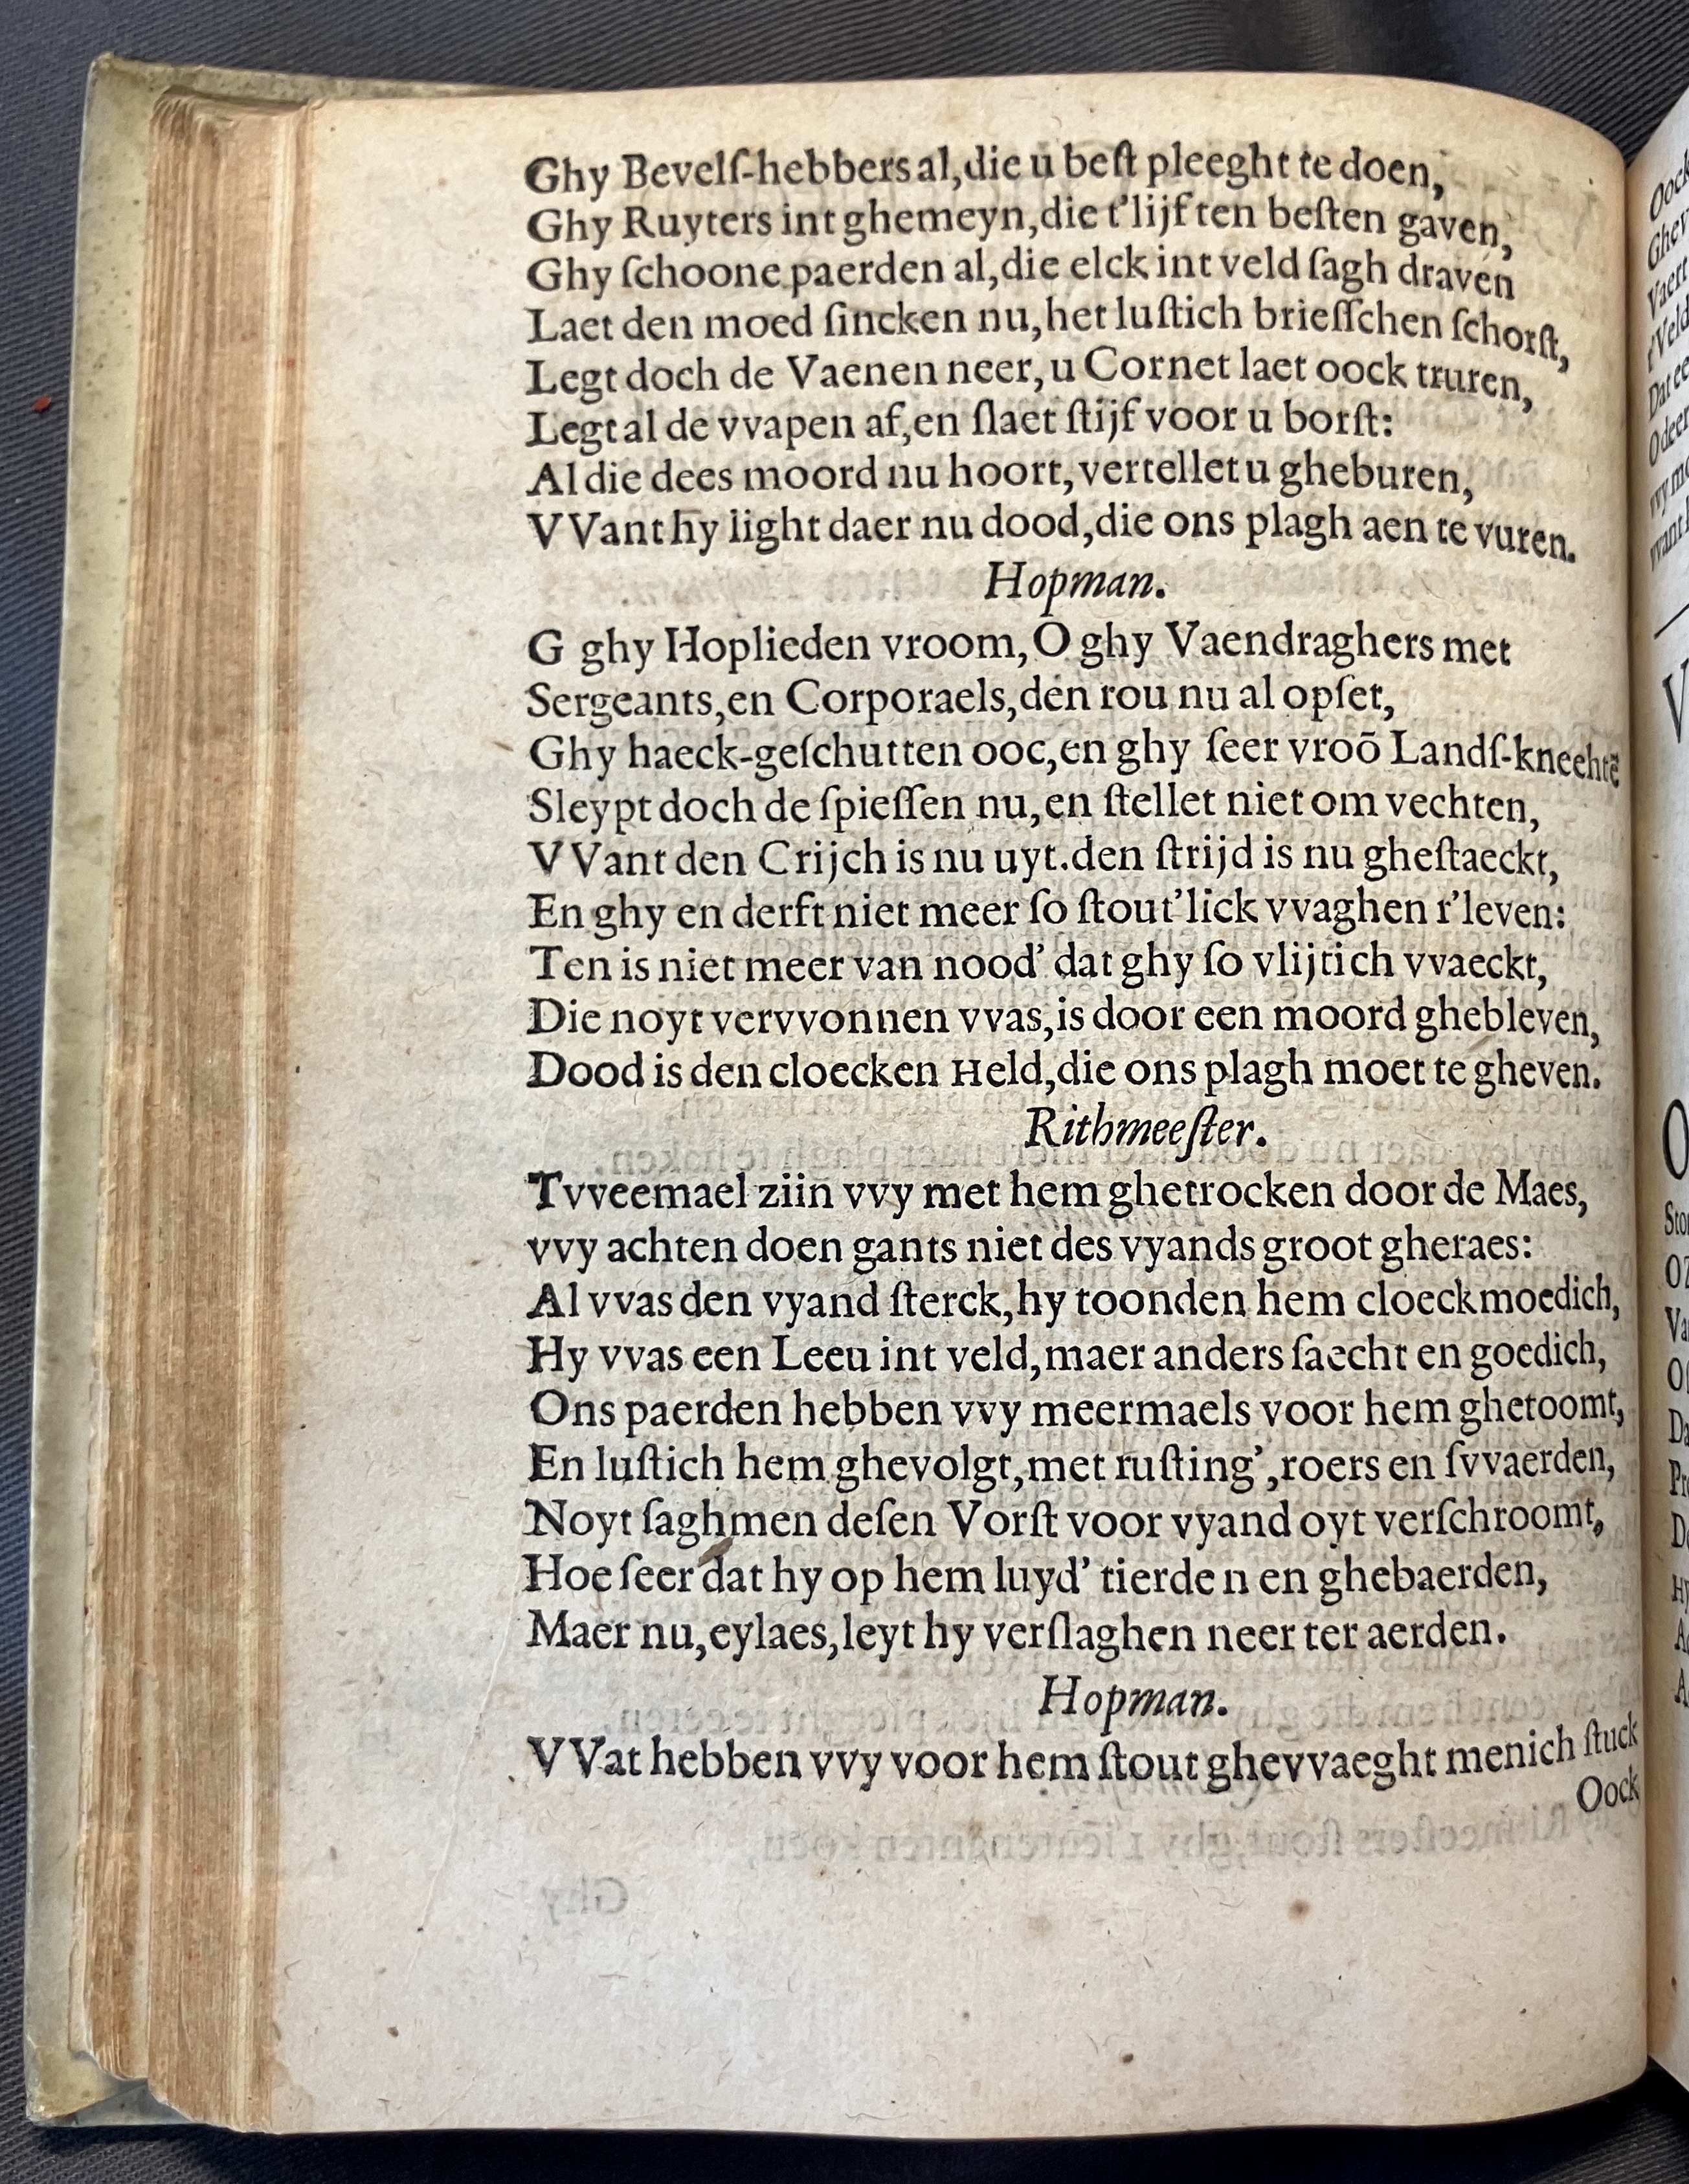 Ghy Bevelſ-hebbers al,die u beſt pleeght te doen,
Ghy Ruyters int ghemeyn,die t'lijf ten beſten gaven,
Ghy ſchoone paerden al,die elck int veld ſagh draven
Laet den moed ſincken nu,het luſtich brieſſchen ſchorſt,
Legt doch de Vaenen neer,u Cornet laet oock truren,
Legt al de vvapen af,en ſlaet ſtijf voor u borſt:
Al die dees moord nu hoort,vertellet u gheburen,
VVant hy light daer nu dood,die ons plagh aen te vuren.
Hopman.
G ghy Hoplieden vroom,O ghy Vaendraghers met
Sergeants,en Corporaels,den rou nu al opſet,
Ghy haeck-geſchutten ooc,en ghy ſeer vroō Landſ-kneehtē
Sleypt doch de ſpieſſen nu,en ſtellet niet om vechten,
VVant den Crijch is nu uyt.den ſtrijd is nu gheſtaeckt,
En ghy en derft niet meer ſo ſtout'lick vvaghen t'leven:
Ten is niet meer van nood' dat ghy ſo vlijtich vvaeckt,
Die noyt vervvonnen vvas,is door een moord ghebleven,
Dood is den cloecken Held,die ons plagh moet te gheven.
Rithmeeſter.
Tvveemael ziin vvy met hem ghetrocken door de Maes,
vvy achten doen gants niet des vyands groot gheraes:
Al vvas den vyand ſterck,hy toonden hem cloeckmoedich,
Hy vvas een Leeu int veld,maer anders ſaecht en goedich,
Ons paerden hebben vvy meermaels voor hem ghetoomt,
En luſtich hem ghevolgt,met ruſting',roers en ſvvaerden,
Noyt ſaghmen deſen Vorſt voor vyand oyt verſchroomt,
Hoe ſeer dat hy op hem luyd' tierde n en ghebaerden,
Maer nu,eylaes,leyt hy verſlaghen neer ter aerden.
Hopman.
VVat hebben vvy voor hem ſtout ghevvaeght menich ſtuck
Oock